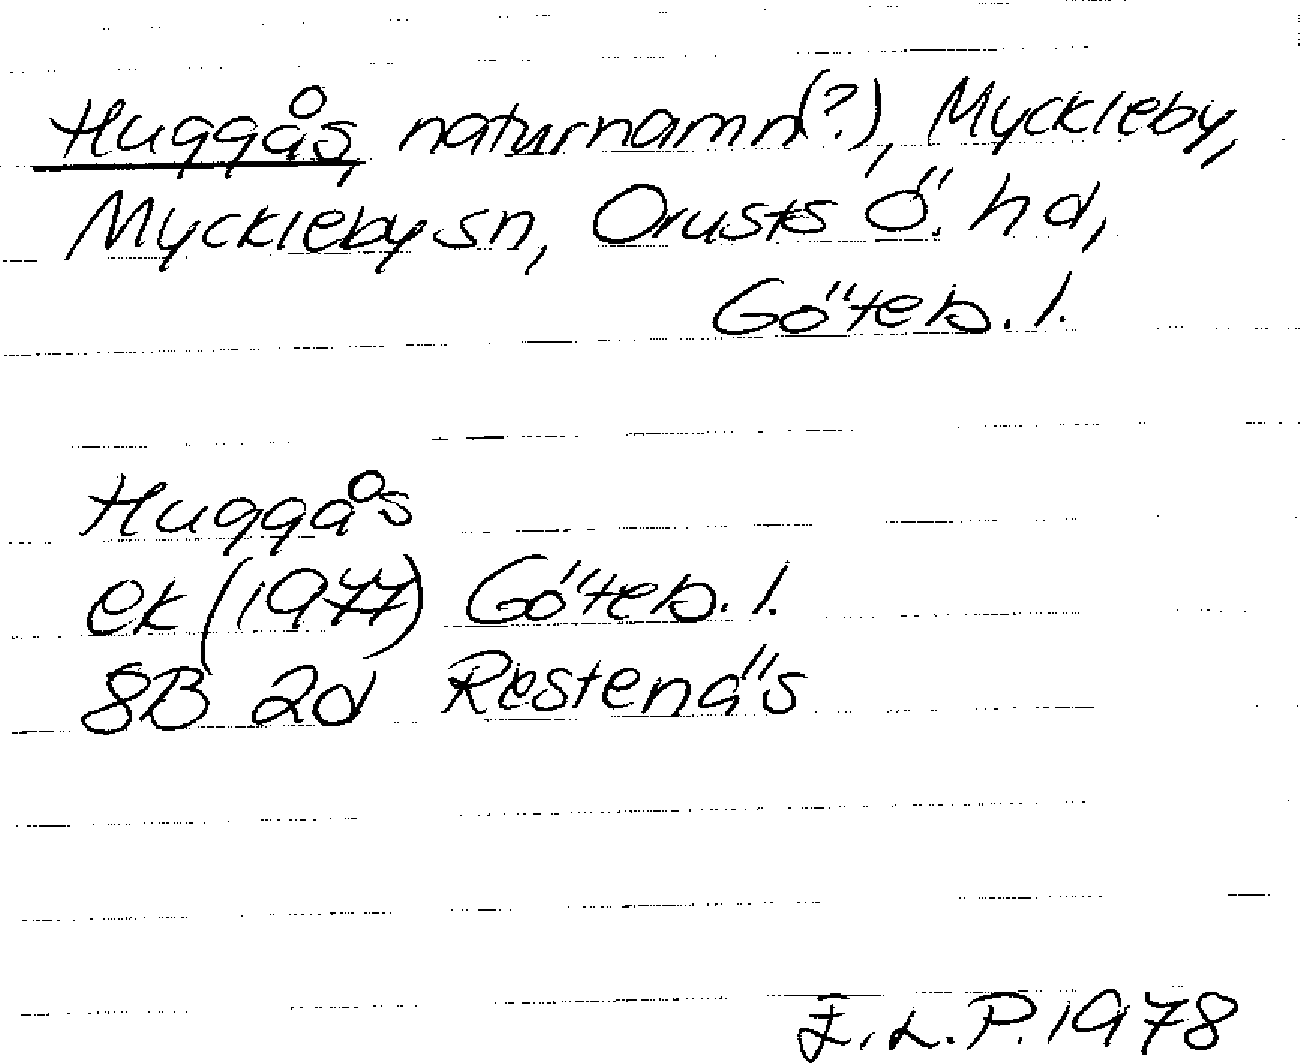 Huggås, naturnamn(?), Myckleby,
Myckleby sn, Orusts Ö. hd,
Göteb. l.
Huggås
ek (1977) Göteb. l.
8B 2d Restenäs
E.L.P. 1978